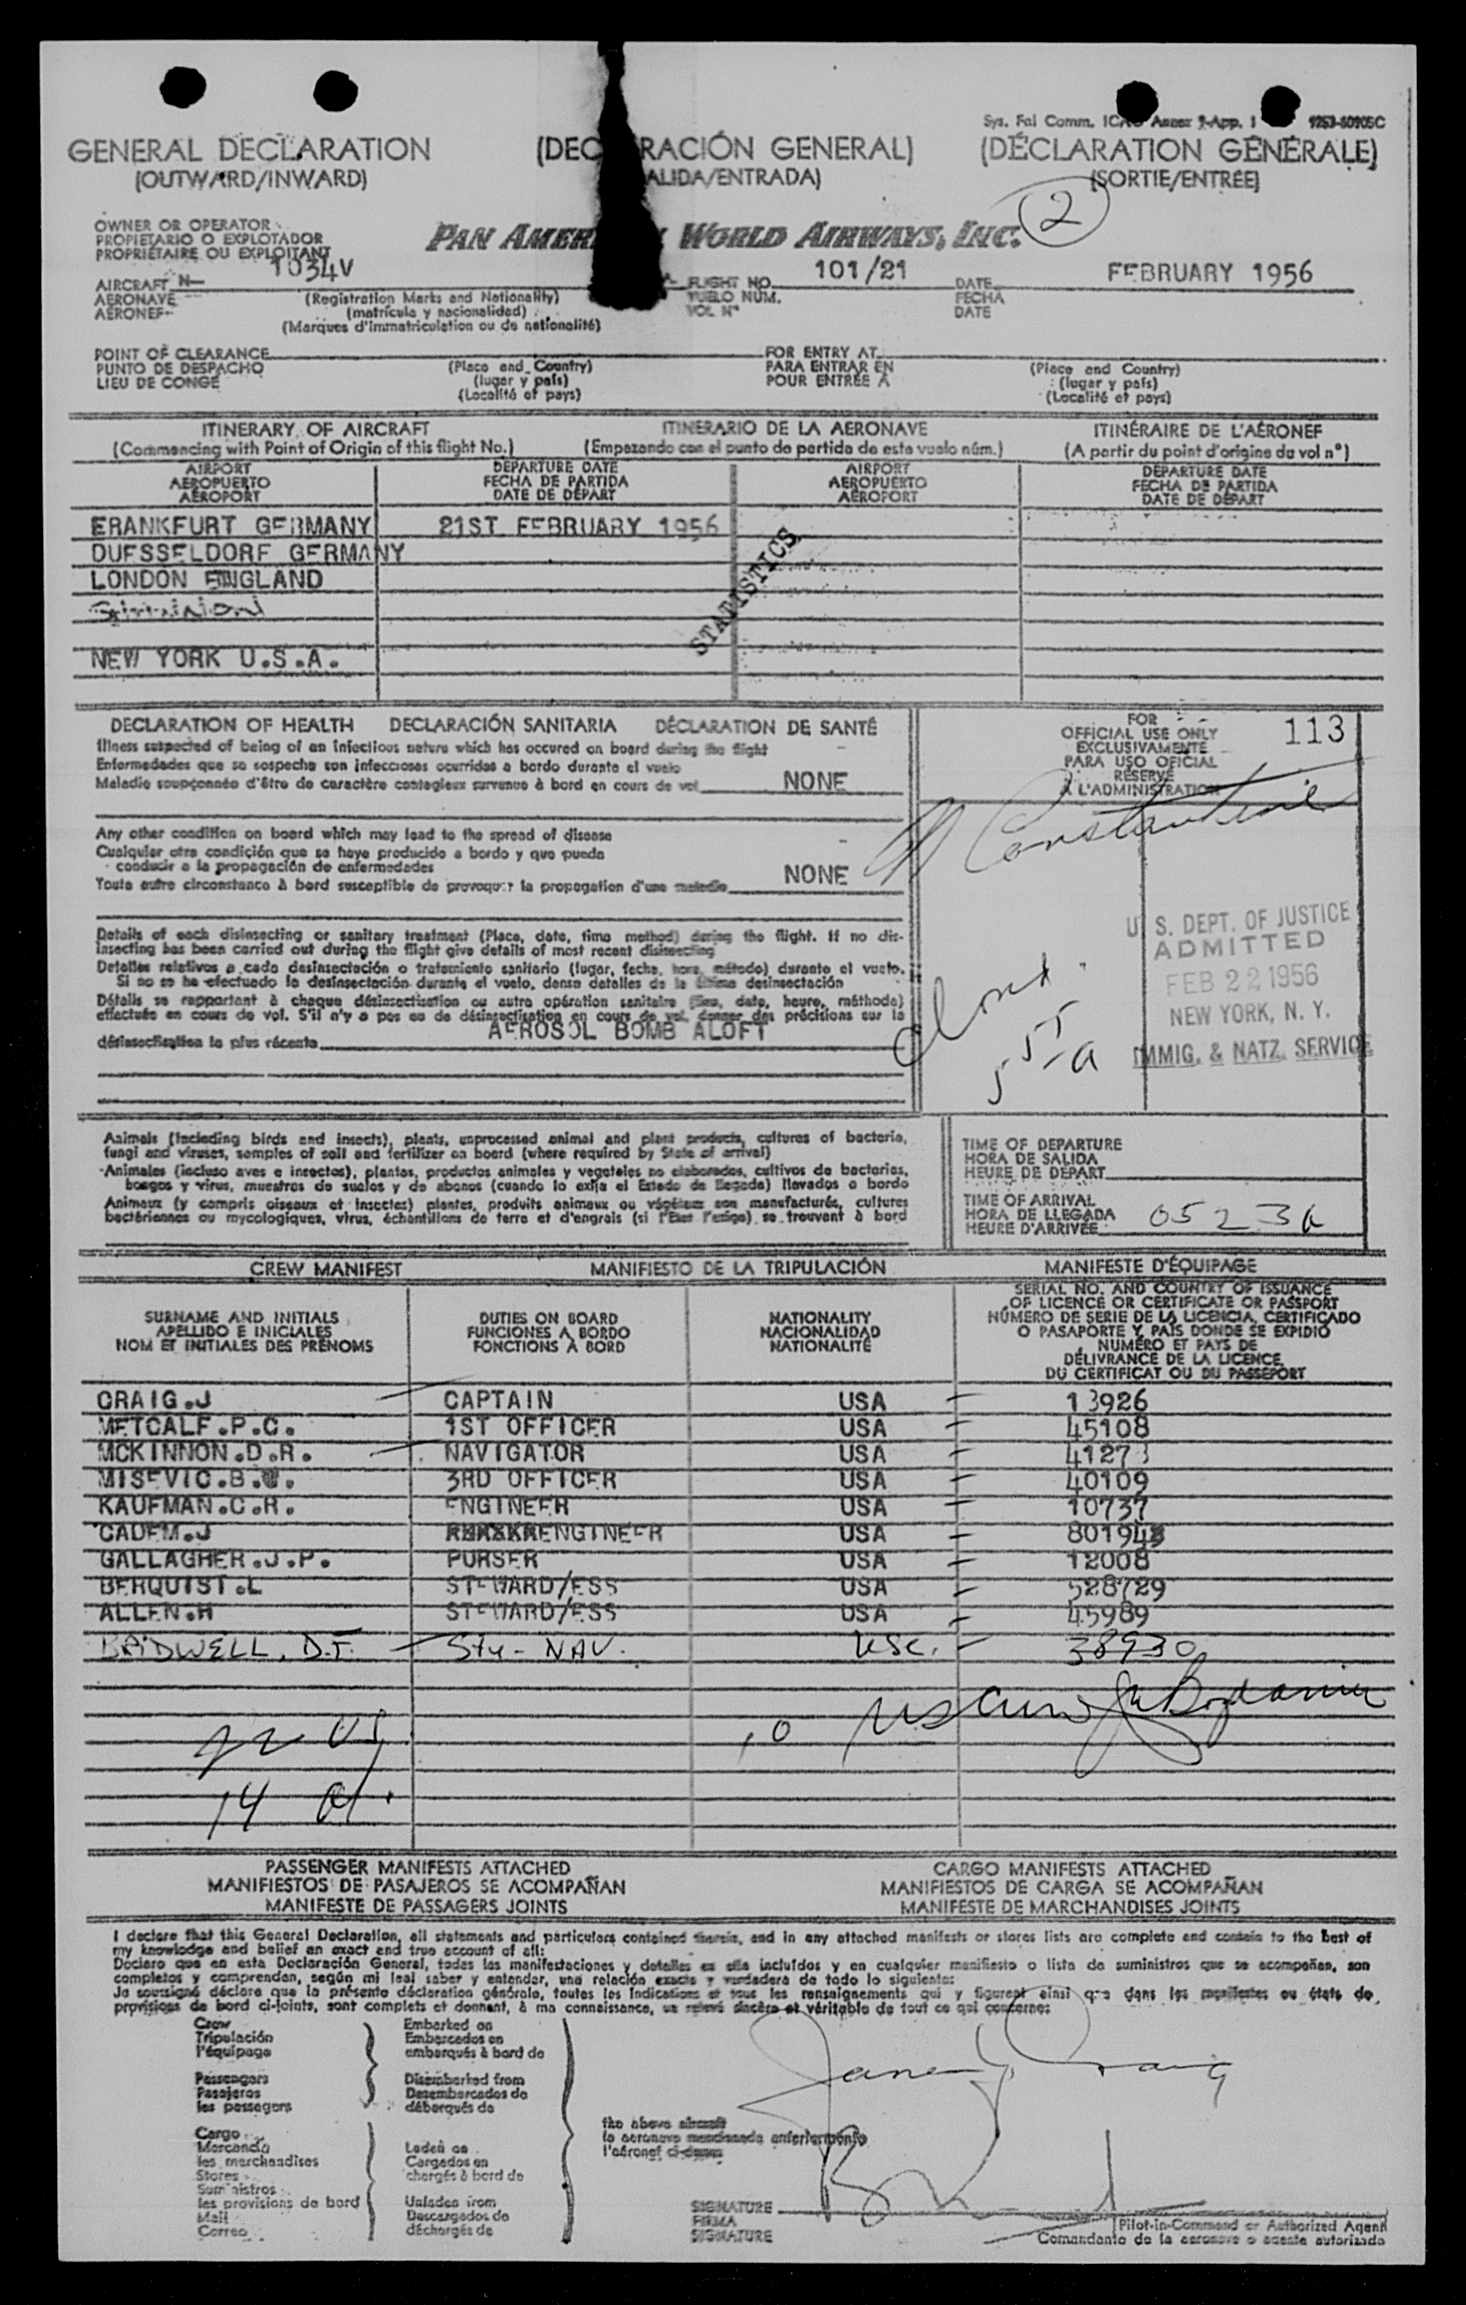 Sys. Fal Comm. ICAO Annex 9-App. 1
GENERAL DECLARATION
(OUTWARD/INWARD)
(DEC RACIÓN GENERAL)
ALIDA/ENTRADA)
(DÉCLARATION GÉNÉRALE)
(SORTIE/ENTRÉE)
2
OWNER OR OPERATOR
PROPIETARIO O EXPLOTADOR
PROPRIÉTAIRE OU EXPLOITANT
PAN AMER WORLD AIRWAYS, INC.
AIRCRAFT N- 1034V
AÉRONAVE
AÉRONEF
(Registration Marks and Nationality)
(matrícula y nacionalidad)
(Marques d'immatriculation ou de nationalité)
FLIGHT NO. 101/21
VUELO NÚM.
VOL Nº
DATE FEBRUARY 1956
FECHA
DATE
POINT OF CLEARANCE
PUNTO DE DESPACHO
LIEU DE CONGÉ
(Place and Country)
(lugar y país)
(Localité et pays)
FOR ENTRY AT
PARA ENTRAR EN
POUR ENTRÉE A
(Place and Country)
(lugar y país)
(Localité et pays)
ITINERARY OF AIRCRAFT
(Commencing with Point of Origin of this flight No.)
ITINERARIO DE LA AERONAVE
(Empezando con el punto de partida de este vuelo núm.)
ITINÉRAIRE DE L'AÉRONEF
(A partir du point d'origine du vol nº)
AIRPORT
AEROPUERTO
AÉROPORT
DEPARTURE DATE
FECHA DE PARTIDA
DATE DE DÉPART
AIRPORT
AEROPUERTO
AÉROPORT
DEPARTURE DATE
FECHA DE PARTIDA
DATE DE DÉPART
FRANKFURT GERMANY 21ST FEBRUARY 1956
DUESSELDORF GERMANY
LONDON ENGLAND
NEW YORK U.S.A.
STATISTICS
DECLARATION OF HEALTH DECLARACIÓN SANITARIA DÉCLARATION DE SANTÉ
Illness suspected of being of an infectious nature which has occured on board during the flight
Enfermedades que se sospecha son infecciosas ocurridas a bordo durante el vuelo
Maladie soupçonnée d'être de caractère contagieux survenue à bord en cours de vol NONE
Any other condition on board which may lead to the spread of disease
Cualquier otra condición que se haya producido a bordo y que pueda
conducir a la propagación de enfermedades
Toute autre circonstance à bord susceptible de provoquer la propagation d'une maladie NONE
Details of each disinsecting or sanitary treatment (Place, date, time method) during the flight. If no dis-
insecting has been carried out during the flight give details of most recent disinsecting
Detalles relativos a cada desinsectación o tratamiento sanitario (lugar, fecha, hora, método) durante el vuelo.
Si no se ha efectuado la desinsectación durante el vuelo, danse detalles de la última desinsectación
Détails se rapportant à chaque désinsectisation ou autre opération sanitaire (lieu, date, heure, méthode)
effectuée en cours de vol. S'il n'y a pas eu de désinsectisation en cours de vol, donner des précisions sur la
désinsectisation la plus récente AEROSOL BOMB ALOFT
FOR
OFFICIAL USE ONLY
EXCLUSIVAMENTE
PARA USO OFICIAL
RÉSERVÉ
À L'ADMINISTRATION
113
U. S. DEPT. OF JUSTICE
ADMITTED
FEB 22 1956
NEW YORK, N. Y.
IMMIG. & NATZ. SERVICE
Animals (including birds and insects), plants, unprocessed animal and plant products, cultures of bacteria,
fungi and viruses, samples of soil and fertilizer on board (where required by State of arrival)
Animales (incluso aves e insectos), plantas, productos animales y vegetales no elaborados, cultivos de bacterias,
hongos y virus, muestras de suelos y de abonos (cuando lo exija el Estado de llegada) llevados a bordo
Animaux (y compris oiseaux et insectes) plantes, produits animaux ou végétaux non manufacturés, cultures
bactériennes ou mycologiques, virus, échantillons de terre et d'engrais (si l'Etat l'exige) se trouvant à bord
TIME OF DEPARTURE
HORA DE SALIDA
HEURE DE DÉPART
TIME OF ARRIVAL
HORA DE LLEGADA
HEURE D'ARRIVÉE 0523A
CREW MANIFEST MANIFIESTO DE LA TRIPULACIÓN MANIFESTE D'ÉQUIPAGE
SURNAME AND INITIALS
APELLIDO E INICIALES
NOM ET INITIALES DES PRÉNOMS
DUTIES ON BOARD
FUNCIONES A BORDO
FONCTIONS À BORD
NATIONALITY
NACIONALIDAD
NATIONALITÉ
SERIAL NO. AND COUNTRY OF ISSUANCE
OF LICENCE OR CERTIFICATE OR PASSPORT
NÚMERO DE SERIE DE LA LICENCIA, CERTIFICADO
O PASAPORTE Y PAÍS DONDE SE EXPIDIÓ
NUMÉRO ET PAYS DE
DÉLIVRANCE DE LA LICENCE,
DU CERTIFICAT OU DU PASSEPORT
CRAIG.J CAPTAIN USA 13926
METCALF.P.C. 1ST OFFICER USA 45108
MCKINNON.D.R. NAVIGATOR USA 41273
MISEVIC.B.W. 3RD OFFICER USA 40109
KAUFMAN.C.R. ENGINEER USA 10737
CADEM.J ENGINEER USA
GALLAGHER.J.P. PURSER USA 12008
BERQUIST.L STEWARD/ESS USA 528729
ALLEN.H STEWARD/ESS USA 45989
BRIDWELL, D.T. STY-NAV. USC. 38930
10
14
PASSENGER MANIFESTS ATTACHED
MANIFIESTOS DE PASAJEROS SE ACOMPAÑAN
MANIFESTE DE PASSAGERS JOINTS
CARGO MANIFESTS ATTACHED
MANIFIESTOS DE CARGA SE ACOMPAÑAN
MANIFESTE DE MARCHANDISES JOINTS
I declare that this General Declaration, all statements and particulars contained therein, and in any attached manifests or stores lists are complete and contain to the best of
my knowledge and belief an exact and true account of all:
Declaro que en esta Declaración General, todas las manifestaciones y detalles en ella incluídos y en cualquier manifiesto o lista de suministros que se acompañan, son
completos y comprenden, según mi leal saber y entender, una relación exacta y verdadera de todo lo siguiente:
Je soussigné déclare que la présente déclaration générale, toutes les indications et tous les renseignements qui y figurent ainsi que dans les manifestes ou états de
provisions de bord ci-joints, sont complets et donnent, à ma connaissance, un relevé sincère et véritable de tout ce qui concerne:
Crew
Tripulación
l'équipage
Embarked on
Embarcados en
embarqués à bord de
Passengers
Pasajeros
les passagers
Disembarked from
Desembarcados de
débarqués de
Cargo
Mercancía
les marchandises
Stores
Suministros
les provisions de bord
Mail
Correo
Laden on
Cargados en
chargés à bord de
Unladen from
Descargados de
déchargés de
the above aircraft
la aeronave mencionada anteriormente
l'aéronef ci-dessus
James J Craig
SIGNATURE
FIRMA
SIGNATURE
Pilot-in-Command or Authorized Agent
Comandante de la aeronave o agente autorizado